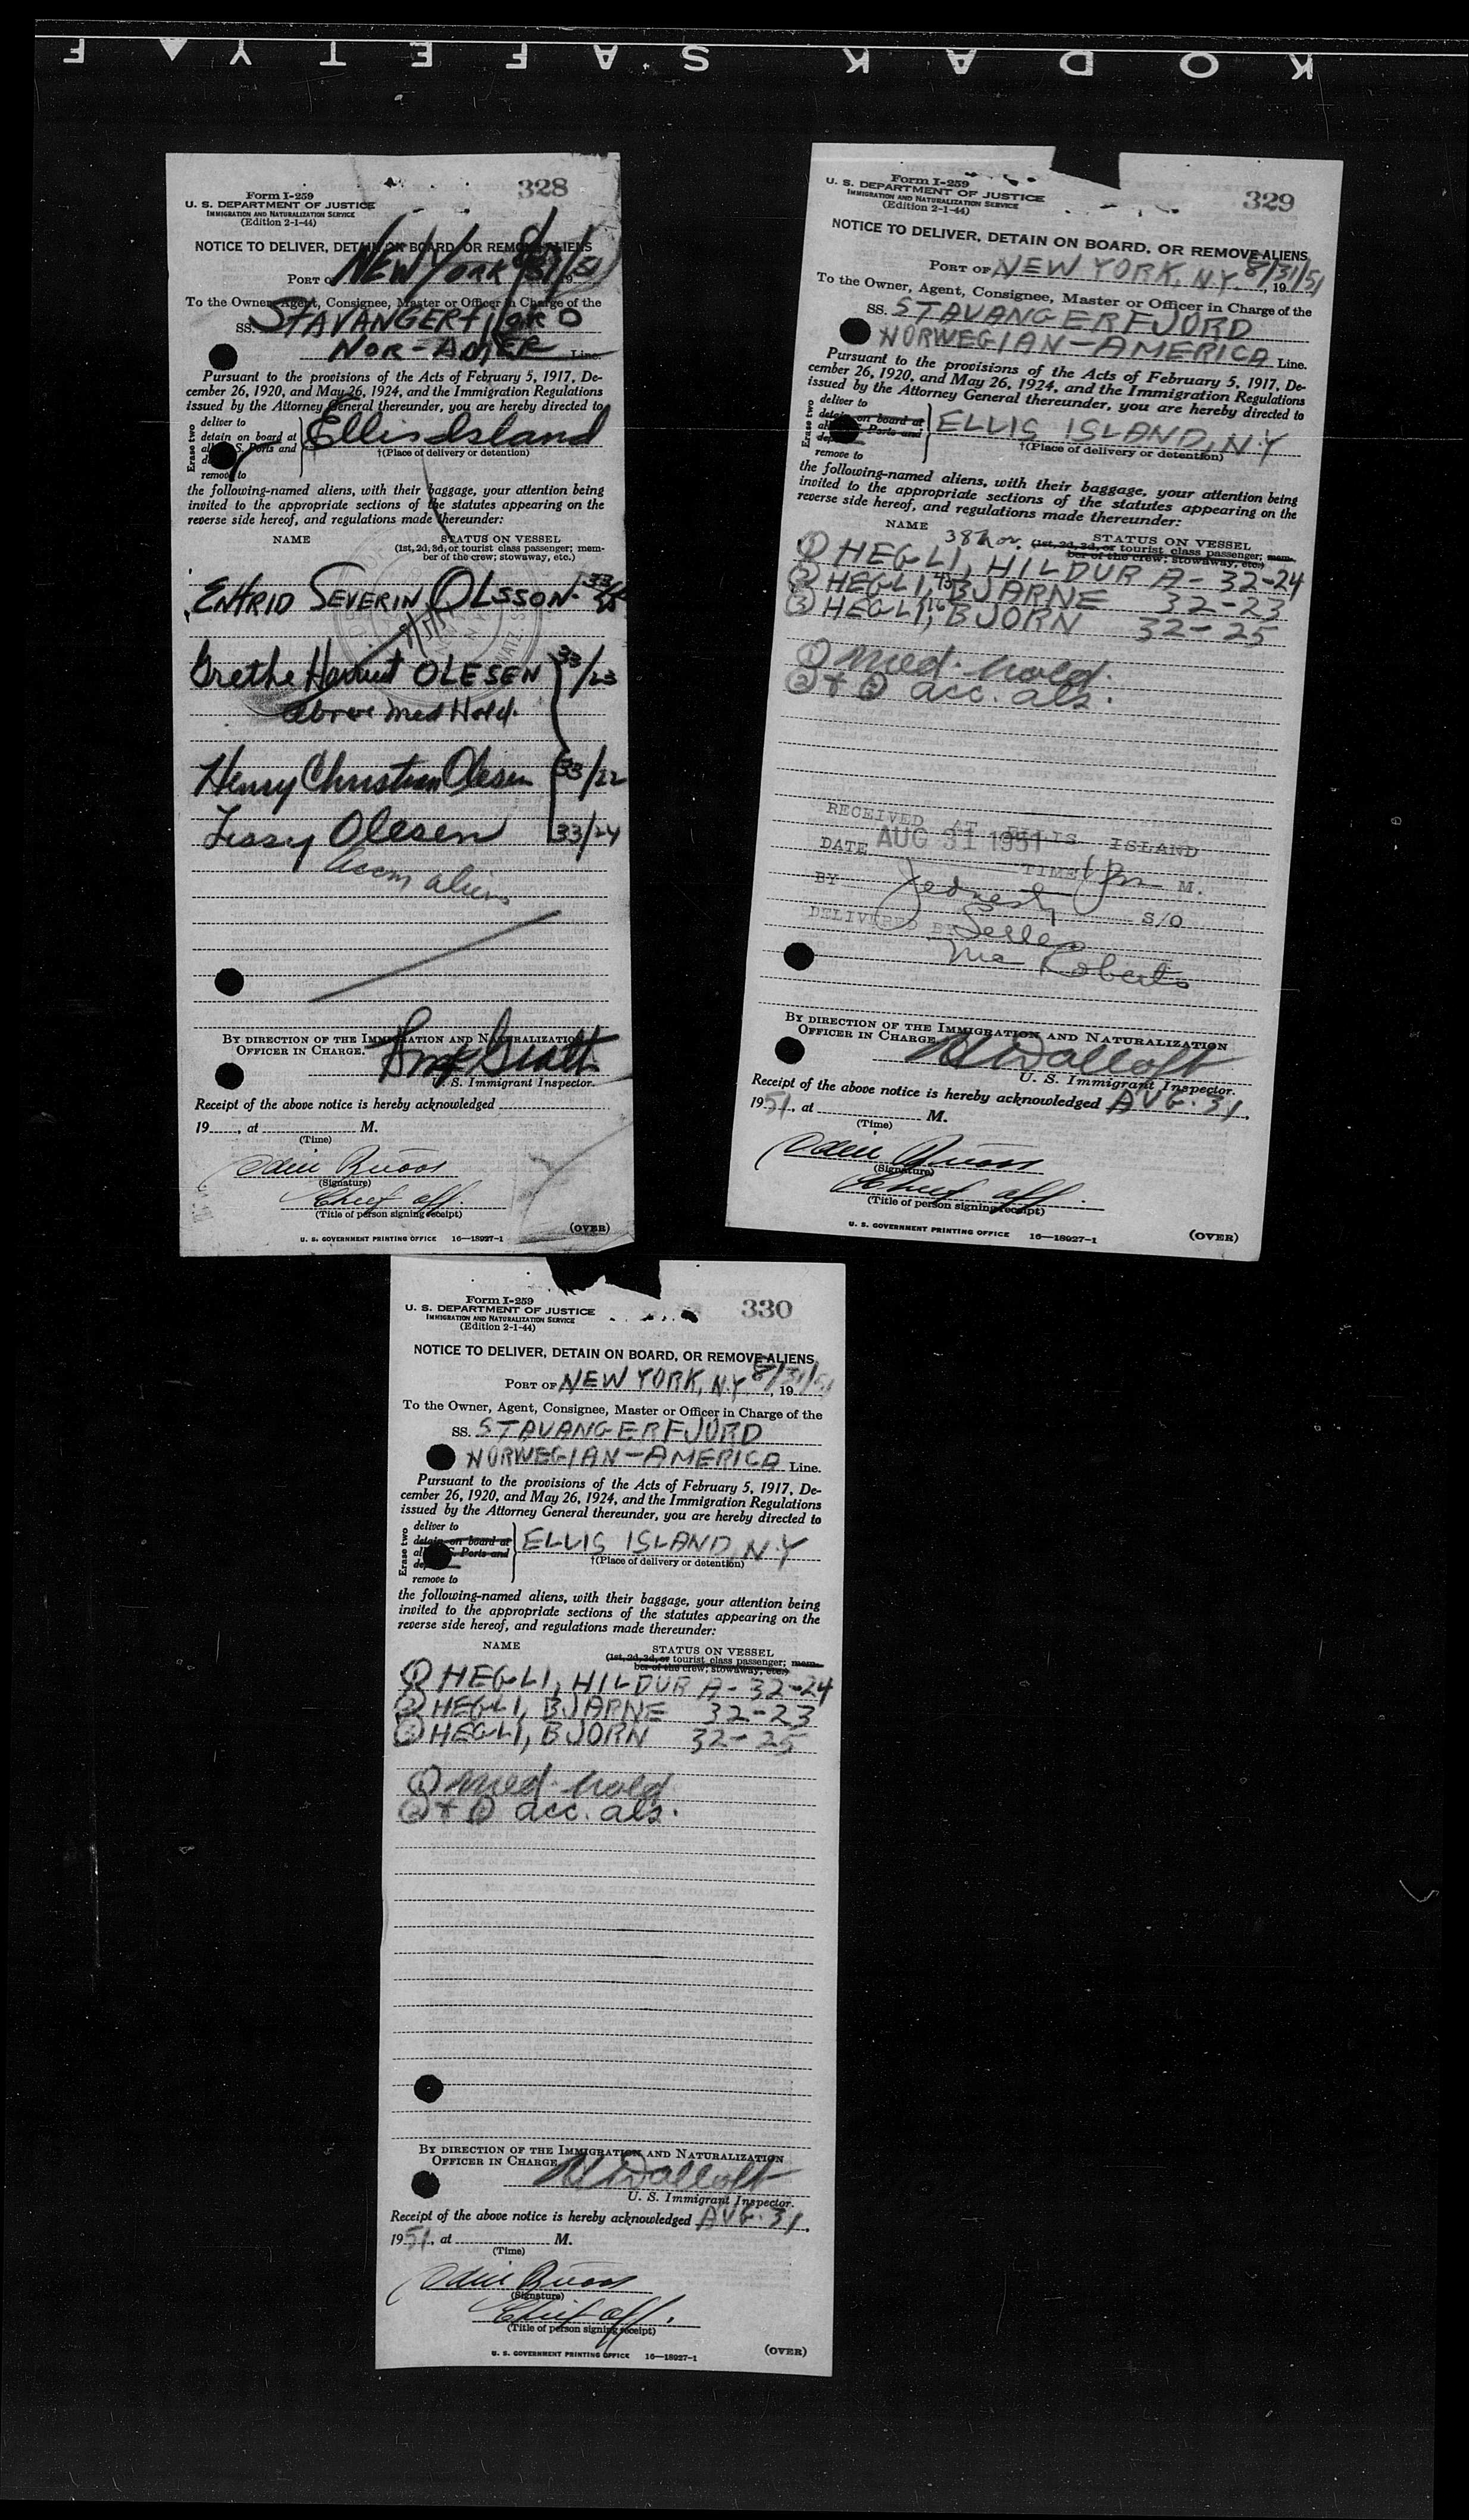 KODAK SAFETY
328
Form I-259
U. S. DEPARTMENT OF JUSTICE
IMMIGRATION AND NATURALIZATION SERVICE
(Edition 2-1-44)
NOTICE TO DELIVER, DETAIN ON BOARD, OR REMOVE ALIENS
PORT OF NEW YORK 8/31/51
To the Owner, Agent, Consignee, Master or Officer in Charge of the
SS. STAVANGERFJORD
NOR-AMER Line.
Pursuant to the provisions of the Acts of February 5, 1917, De-
cember 26, 1920, and May 26, 1924, and the Immigration Regulations
issued by the Attorney General thereunder, you are hereby directed to
Erase two
deliver to
detain on board at
all S. Ports and
remove to
Ellis Island
†(Place of delivery or detention)
the following-named aliens, with their baggage, your attention being
invited to the appropriate sections of the statutes appearing on the
reverse side hereof, and regulations made thereunder:
NAME STATUS ON VESSEL
(1st, 2d, 3d, or tourist class passenger; mem-
ber of the crew; stowaway, etc.)
SEVERIN OLSSON
Grethe OLESEN 33/23
above med Hold.
Henry Christian Olesen 33/22
Lissy Olesen 33/24
accm aliens
BY DIRECTION OF THE IMMIGRATION AND NATURALIZATION
OFFICER IN CHARGE.
U. S. Immigrant Inspector.
Receipt of the above notice is hereby acknowledged
19 , at M.
(Time)
(Signature)
Chief off.
(Title of person signing receipt)
(OVER)
U. S. GOVERNMENT PRINTING OFFICE 16—18927-1
329
Form I-259
U. S. DEPARTMENT OF JUSTICE
IMMIGRATION AND NATURALIZATION SERVICE
(Edition 2-1-44)
NOTICE TO DELIVER, DETAIN ON BOARD, OR REMOVE ALIENS
PORT OF NEW YORK, N.Y. 8/31/51, 19
To the Owner, Agent, Consignee, Master or Officer in Charge of the
SS. STAVANGERFJORD
NORWEGIAN-AMERICA Line.
Pursuant to the provisions of the Acts of February 5, 1917, De-
cember 26, 1920, and May 26, 1924, and the Immigration Regulations
issued by the Attorney General thereunder, you are hereby directed to
Erase two
deliver to
detain on board at
all S. Ports and
remove to
ELLIS ISLAND, N.Y
†(Place of delivery or detention)
the following-named aliens, with their baggage, your attention being
invited to the appropriate sections of the statutes appearing on the
reverse side hereof, and regulations made thereunder:
NAME STATUS ON VESSEL
38 Nor. (1st, 2d, 3d, or tourist class passenger; mem-
ber of the crew; stowaway, etc.)
① HEGLI, HILDUR A- 32-24
② HEGLI, BJARNE 32-23
③ HEGLI, BJORN 32-25
① med. hold.
② + ③ acc. als.
RECEIVED AT ELLIS ISLAND
DATE AUG 31 1951
TIME M.
BY S/O
DELIVERED BY
Roberts
BY DIRECTION OF THE IMMIGRATION AND NATURALIZATION
OFFICER IN CHARGE.
U. S. Immigrant Inspector.
Receipt of the above notice is hereby acknowledged AUG. 31,
1951, at M.
(Time)
(Signature)
Chief off.
(Title of person signing receipt)
U. S. GOVERNMENT PRINTING OFFICE 16—18927-1
(OVER)
330
Form I-259
U. S. DEPARTMENT OF JUSTICE
IMMIGRATION AND NATURALIZATION SERVICE
(Edition 2-1-44)
NOTICE TO DELIVER, DETAIN ON BOARD, OR REMOVE ALIENS
PORT OF NEW YORK, N.Y. 8/31/51, 19
To the Owner, Agent, Consignee, Master or Officer in Charge of the
SS. STAVANGERFJORD
NORWEGIAN-AMERICA Line.
Pursuant to the provisions of the Acts of February 5, 1917, De-
cember 26, 1920, and May 26, 1924, and the Immigration Regulations
issued by the Attorney General thereunder, you are hereby directed to
Erase two
deliver to
detain on board at
all S. Ports and
remove to
ELLIS ISLAND, N.Y
†(Place of delivery or detention)
the following-named aliens, with their baggage, your attention being
invited to the appropriate sections of the statutes appearing on the
reverse side hereof, and regulations made thereunder:
NAME STATUS ON VESSEL
(1st, 2d, 3d, or tourist class passenger; mem-
ber of the crew; stowaway, etc.)
① HEGLI, HILDUR A- 32-24
② HEGLI, BJARNE 32-23
③ HEGLI, BJORN 32-25
① med. hold
② + ③ acc. als.
BY DIRECTION OF THE IMMIGRATION AND NATURALIZATION
OFFICER IN CHARGE.
U. S. Immigrant Inspector.
Receipt of the above notice is hereby acknowledged AUG. 31,
1951, at M.
(Time)
(Signature)
Chief off.
(Title of person signing receipt)
(OVER)
U. S. GOVERNMENT PRINTING OFFICE 16—18927-1